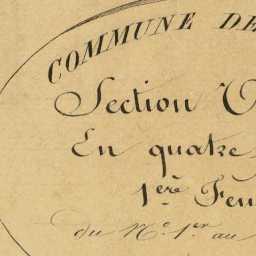 COMMUNE DE
Section
En quatre
1ère Feu
du N.o 1.er au